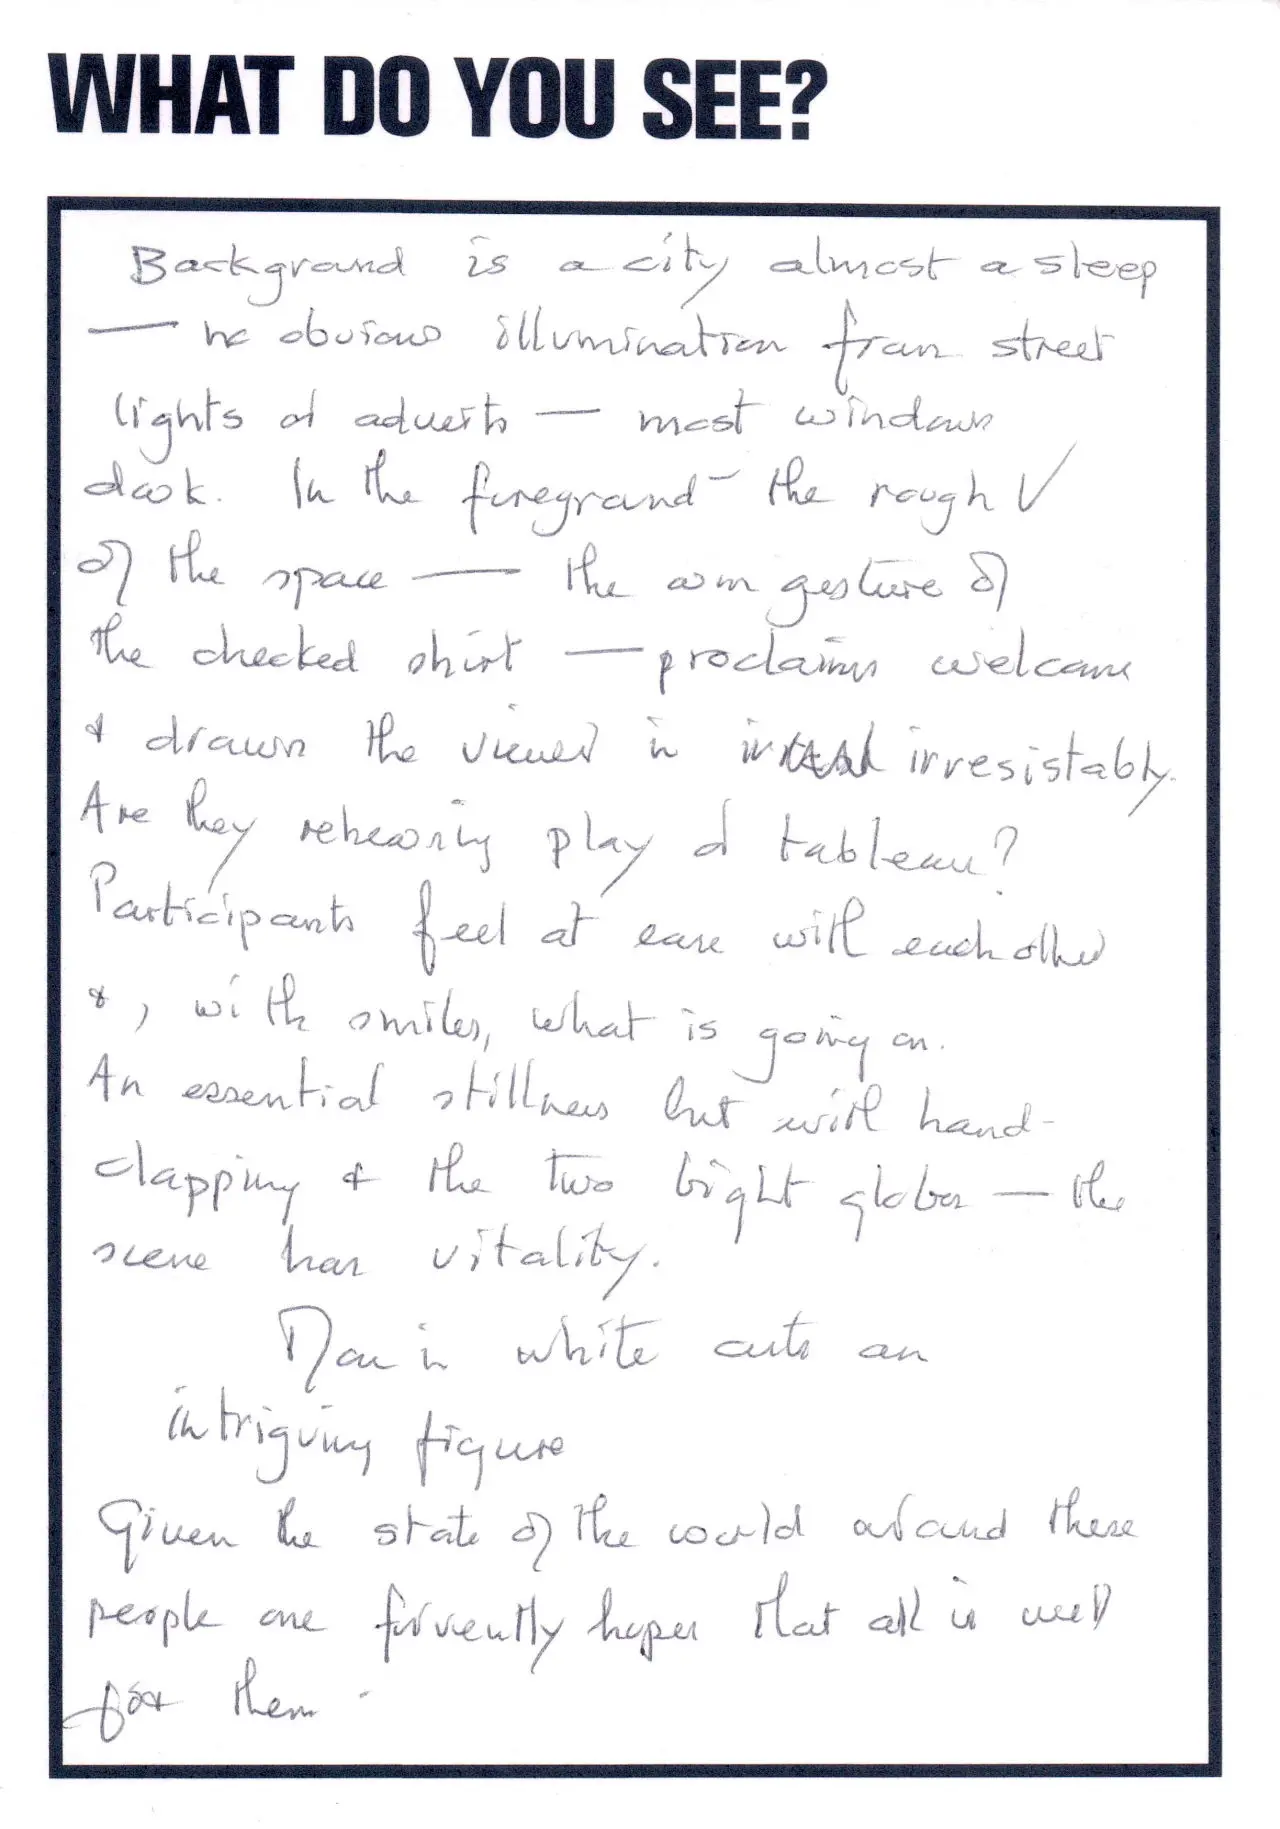 WHAT DO YOU SEE?
Background is a city almost asleep
— no obvious illumination from street
lights or adverts — most windows
dark. In the foreground - the rough V
of the space — the arm gesture of
the checked shirt — proclaims welcome
& draws the viewer in irresistably.
Are they rehearsing play or tableau?
Participants feel at ease with each other
&, with smiles, what is going on.
An essential stillness but with hand-
clapping & the two bright globes — the
scene has vitality.
Man in white cuts an
intriguing figure
Given the state of the world around these
people one fervently hopes that all is well
for them.